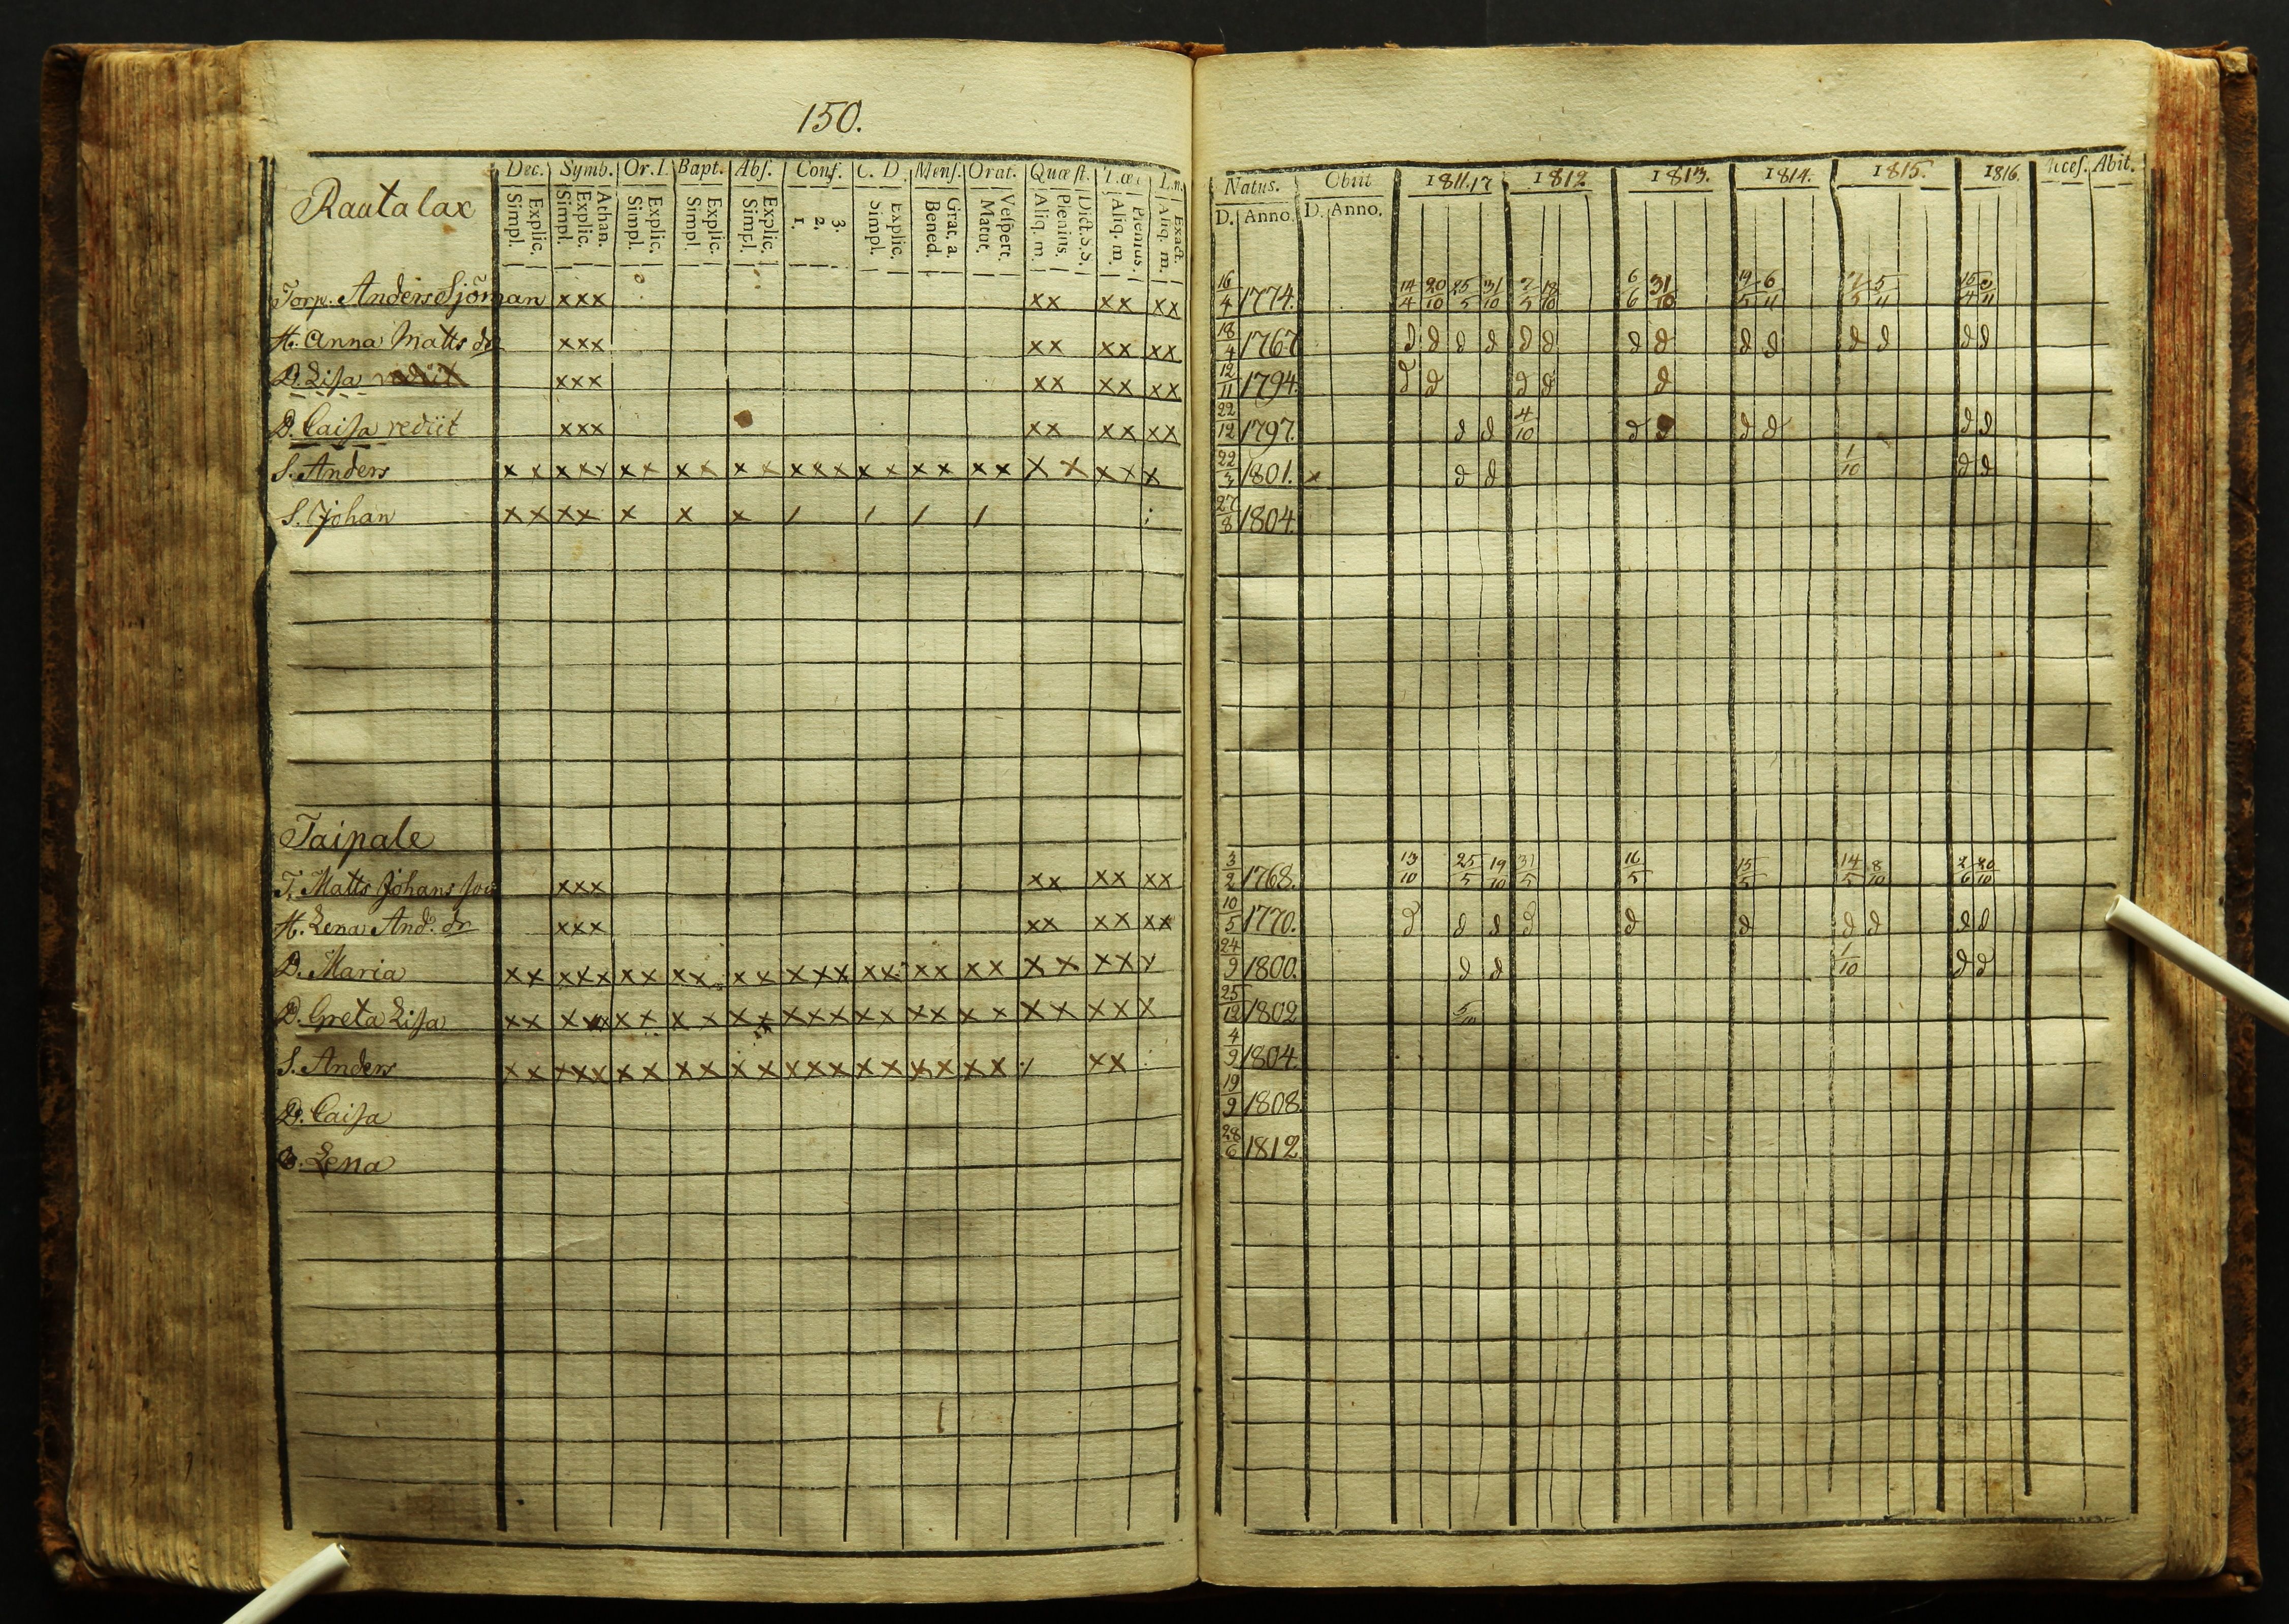 150.
Rautalax
Dec. Symb. Or. I. Bapt. Abſ. Conf. C. D. Menſ. Orat. Quæſt.
Explic. Simpl. Athan. Explic. Simpl. Explic. Simpl. Explic. Simpl. Explic. Simpl. 3. 2. 1. Explic. Simpl. Grat. a. Bened. Veſpert. Matut. Dict. S. S. Plenius. Aliq. m. Plenius. Aliq. m. Exact. Aliq. m.
Natus. Obiit 1811.17 1812 1813. 1814. 1815. 1816. Acceſ. Abit.
D. Anno. D. Anno.
Torp. Anders Sjöman xxx xx xx xx 16/4 1774. 14/4 20/10 25/5 31/10 6/6 31/10 19/5 6/11
H. Anna Matts dr xxx xx xx xx 18/4 1767 d d d d d d d d d d d d d d
D. Lisa xxx xx xx xx 12/11 1794. d d d d d
D. Caisa rediit xxx xx xx xx 22/12 1797. d d 4/10 d d d d d d
S. Anders x x x x x x x x x x x x x x x x x x x x x x x x x x 22/3 1801. x d d 1/10 d d
S. Johan x x x x x x x / / / / 27/8 1804.
Taipale
T. Matts Johans son xxx xx xx xx 3/2 1768. 13/10 25/5 19/10 31/5 16/5 15/5 14/5 8/10 2/6 20/10
H. Lena And. dr xxx xx xx xx 10/5 1770. d d d d d d d d d d
D. Maria xx xxx xx xx xx xxx xx xx xx xx xxx 24/9 1800. d d 1/10 d d
D. Greta Lisa xx xxx xx xx xx xxx xx xx xx xx xxx 25/12 1802
S. Anders xx xxx xx xx xx xxx xx xx xx / xx 4/9 1804.
D. Caisa 19/9 1808.
D. Lena 28/6 1812.